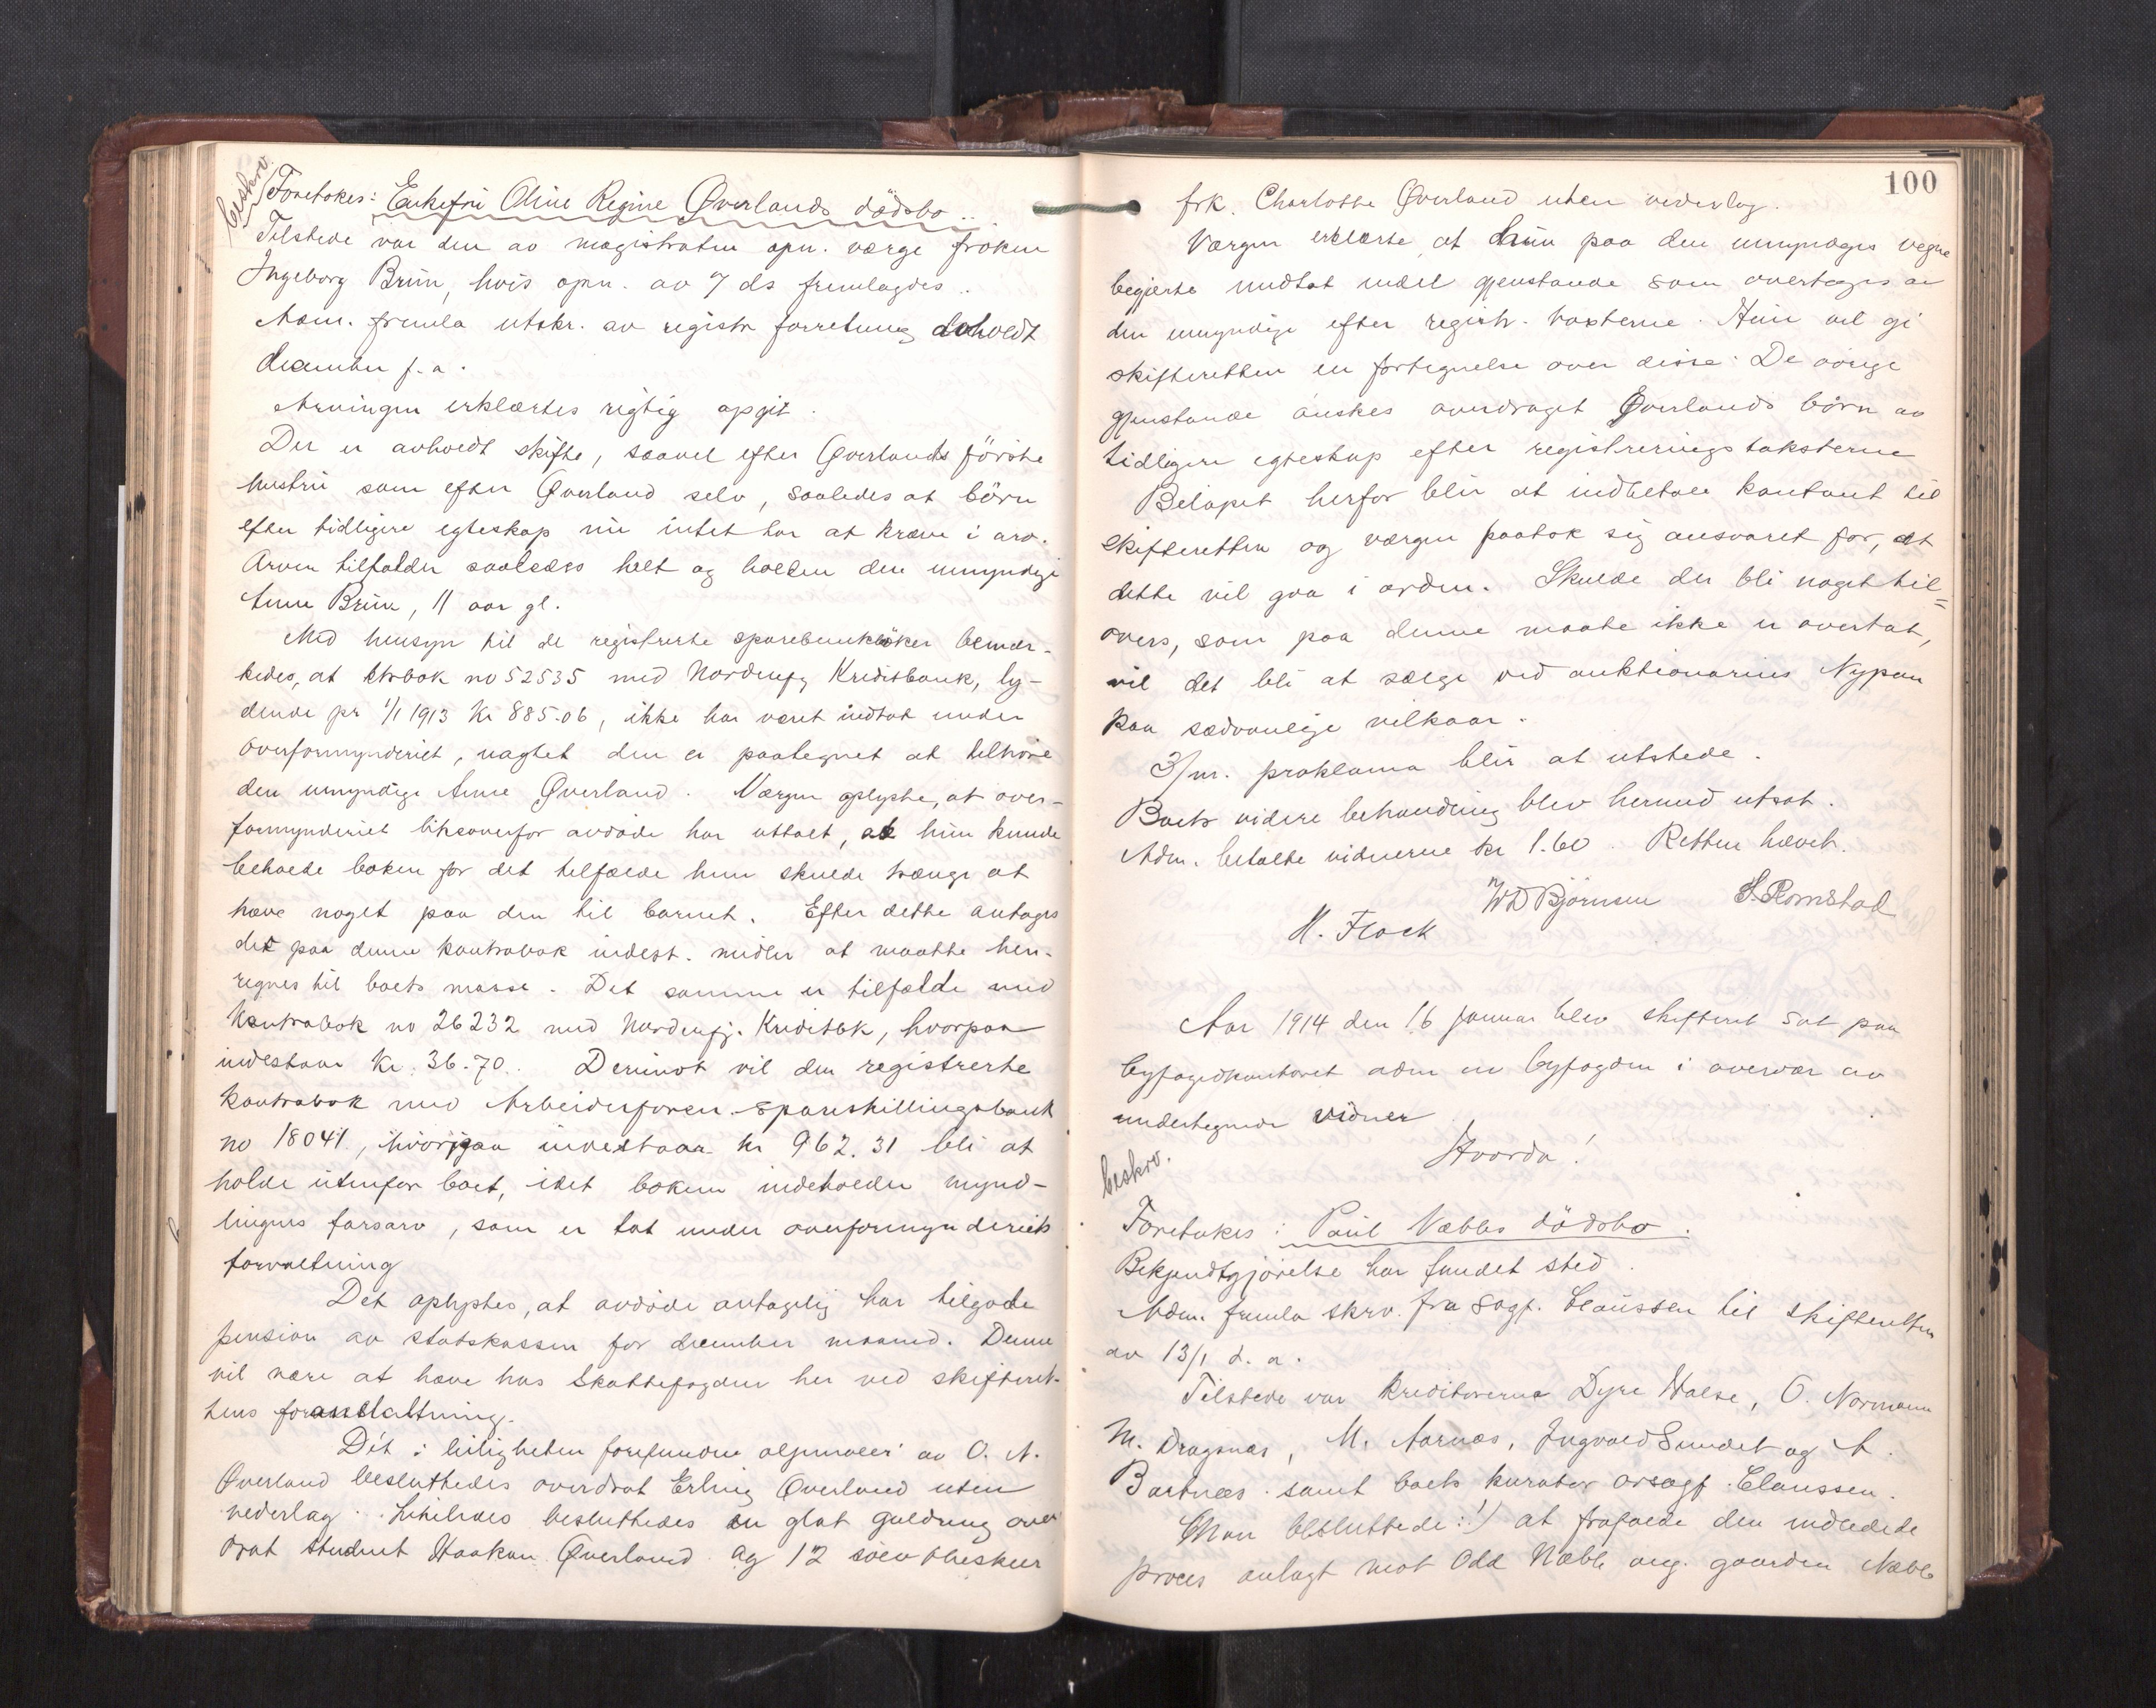 beskrv.
Foretokes: Enkefru Oline Regine Øverlands dødsbo..
Tilstede var den av magistraten opn. verge frøken
Ingeborg Brun, hvis opn. av 7 ds fremlagdes..
Adm. fremla utskr. av registr forretning avholdt
december f. a.
Arvingen erklærtes rigtig opgit.
Der er avholdt skifte, saavel efter Øverlands første
hustru som efter Øverland selv, saaledes at børn
efter tidligere egteskap nu intet har at kræve i arv.
Arven tilfalder saaledes helt og holden den umyndige
Anne Brun, 11 aar gl.
Med hensyn til de registrerte sparebankbøker bemær-
kedes, at ktrbok no 52535 med Nordenfj Kreditbank, ly-
dende pr 1/1 1913 Kr 885.06, ikke har været indtat under
overformynderiet, uagtet den er paategnet at tilhøre
den umyndige Anne Øverland. Værgen oplyste, at over-
formynderiet likeoverfor avdøde har uttalt, at hun kunde
beholde boken for det tilfælde hun skulde trænge at
hæve noget paa den til barnet. Efter dette antages
det paa denne kontrabok indest. midler at maatte hen-
regnes til boets masse. Det samme er tilfælde med
Kontrabok no 26232 med Nordenfj. Kreditbk, hvorpaa
indestaar Kr. 36.70. Derimot vil den registrerte
Kontrabok med Arbeiderforen. Spareskillingsbank
no 18041, hvorpaa indestaar kr 962.31 bli at
holde utenfor boet, idet boken indeholder mynd-
lingens farsarv, som er tat under overformynderiets
forvaltning
Det oplystes, at avdøde antagelig har tilgode
pension av statskassen for december maaned. Denne
vil være at hæve hos Skattefogden her ved skifteret-
tens foranstaltning.
Det i leiligheten forefundne oljemaleri av O. N.
Øverland besluttedes overdrat Erling Øverland uten
vederlag. Likeledes besluttedes en glat guldring over
drat student Haakon Øverland og 12 sølv theskeer
100
frk. Charlotte Øverland uten vederlag.
Værgen erklærte at hun paa den umyndiges vegne
begjærte undtat endel gjenstande som overtages av
den umyndige efter registr. taxterne. Hun vil gi
skifteretten en fortegnelse over disse. De øvrige
gjenstande ønskes overdraget Øverlands børn av
tidligere egteskap efter registreringstaksterne
Beløpet herfor blir at indbetale kontant til
skifteretten og værgen paatok sig ansvaret for, at
dette vil gaa i orden. Skulde der bli noget til=
overs, som paa denne maate ikke er overtat,
vil det bli at sælge ved auktionarius Nypan
paa sædvanlige vilkaar.
3/m. proklama blir at utstede.
Boets videre behandling blev hermed utsat.
Adm. betalte vidnerne kr 1.60. Retten hævet.
WD Bjørnsen S. Romstad
H. Flack
Aar 1914 den 16 januar blev skifteret sat paa
byfogedkontoret adm av byfogden i overvær av
undertegnede vidner
Hvorda!
beskrv.
Foretokes: Paul Næbbs dødsbo.
Bekjendtgjørelse har fundet sted.
Adm. fremla skrv. fra sagf. Claussen til skifteretten
av 13/1 d. a.
Tilstede var kreditorerne Dyre Halse, O. Normann
M. Dragsnes, M. Aarnæs, Ingvald Sundet og A.
Bartnes samt boets kurator orsagf. Claussen.
Man besluttede: 1) at frafalde den indledede
proces anlagt mot Odd Næbb ang. gaarden Næbb